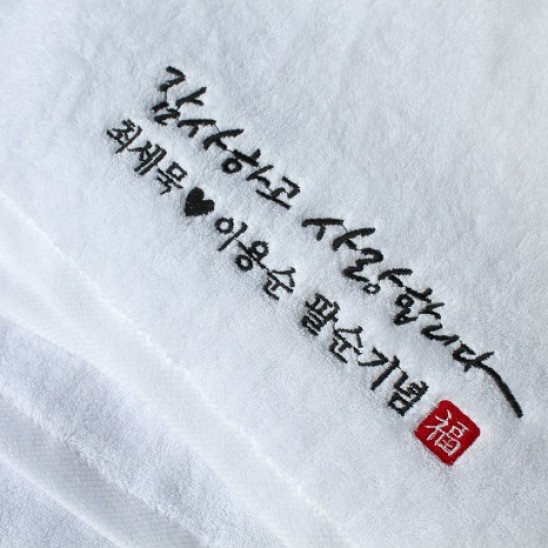 감사하고 사랑합니다
최세묵♥이용순 팔순기념
福